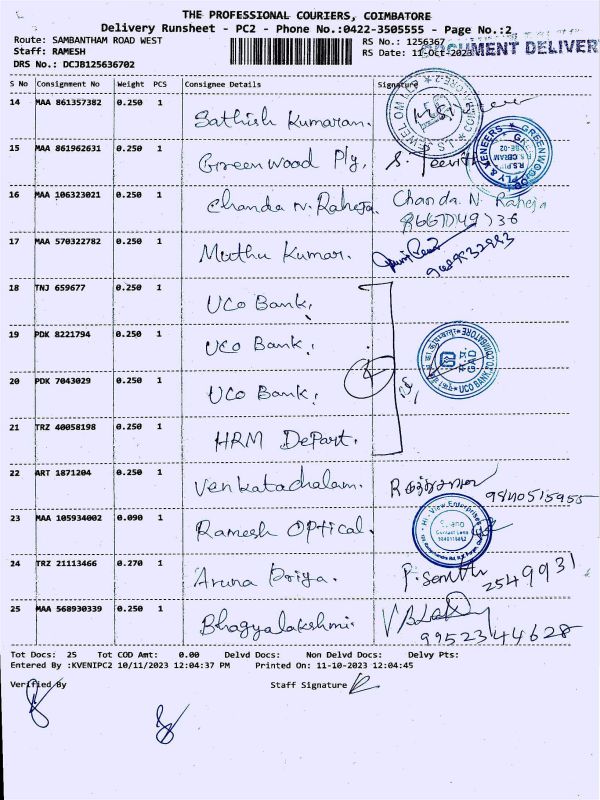 THE PROFESSIONAL COURIERS, COIMBATORE
Delivery Runsheet - PC2 - Phone No.:0422-3505555 - Page No.:2
Route: SAMBANTHAM ROAD WEST RS No.: 1256367
Staff: RAMESH RS Date: 11-Oct-2023
DOCUMENT DELIVER
DRS No.: DCJB125636702
S No Consignment No Weight PCS Consignee Details Signature
14 MAA 861357382 0.250 1 Sathish Kumaran.
15 MAA 861962631 0.250 1 Greenwood Ply,
16 MAA 106323021 0.250 1 Chanda N. Raheja. Chanda. N. Raheja
17 MAA 570322782 0.250 1 Muthu Kumar.
9489832983
18 TNJ 659677 0.250 1 UCO Bank,
19 PDK 8221794 0.250 1 UCO Bank,
20 PDK 7043029 0.250 1 UCO Bank,
GAD
UCO BANK, ZO, COIMBATORE
21 TRZ 40058198 0.250 1 HRM Depart.
22 ART 1871204 0.250 1 Venkatachalam.
9840515955
23 MAA 105934002 0.090 1 Ramesh Optical.
Hi-View Enterprises
24 TRZ 21113466 0.270 1 Aruna Priya. 2549931
25 MAA 568930339 0.250 1 Bhagyalakshmi.
9952344628
Tot Docs: 25 Tot COD Amt: 0.00 Delvd Docs: Non Delvd Docs: Delvy Pts:
Entered By :KVENIPC2 10/11/2023 12:04:37 PM Printed On: 11-10-2023 12:04:45
Verified By Staff Signature